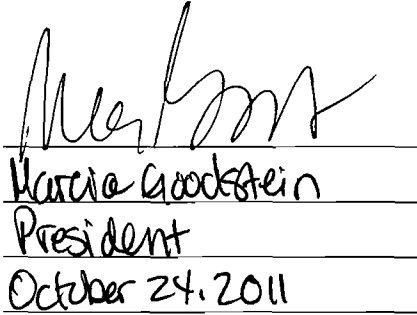 Marcia Goodstein
President
October 24, 2011